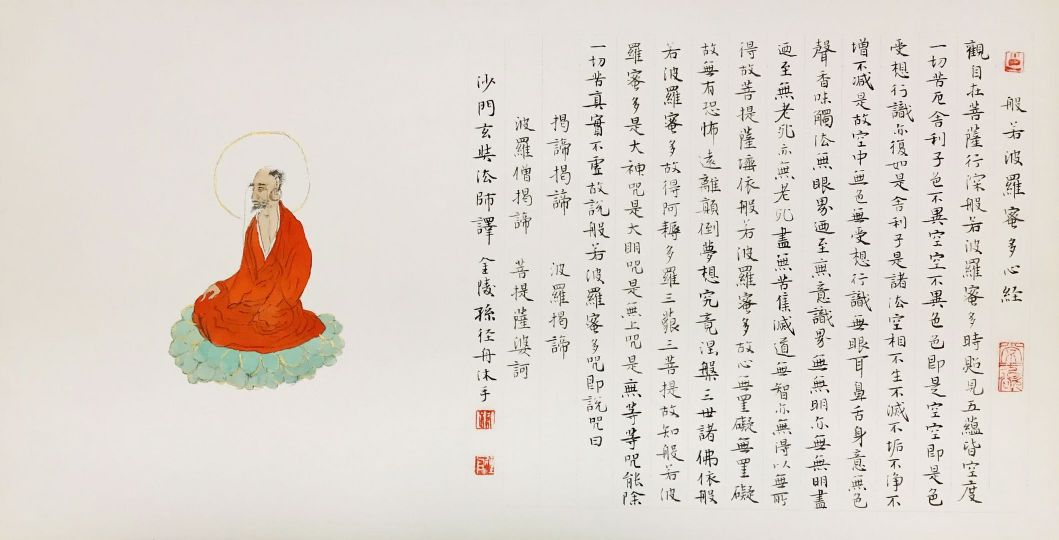 般若波羅蜜多心経
觀自在菩薩行深般若波羅蜜多時照見五蘊皆空度
一切苦厄舍利子色不異空空不異色色即是空空即是色
受想行識亦復如是舍利子是諸法空相不生不滅不垢不净不
增不减是故空中無色無受想行識無眼耳鼻舌身意無色
聲香味觸法無眼界迺至無意識界無無明亦無無明盡
迺至無老死亦無老死盡無苦集滅道無智亦無得以無所
得故菩提薩埵依般若波羅蜜多故心無罣礙無罣礙
故無有恐怖遠離顛倒夢想究竟涅槃三世諸佛依般
若波羅蜜多故得阿耨多羅三藐三菩提故知般若波
羅蜜多是大神咒是大明咒是無上咒是無等等咒能除
一切苦真實不虛故說般若波羅蜜多咒即說咒曰
揭諦揭諦 波羅揭諦
波羅僧揭諦 菩提薩婆訶
沙門玄奘法師譯 金陵孫径舟沐手